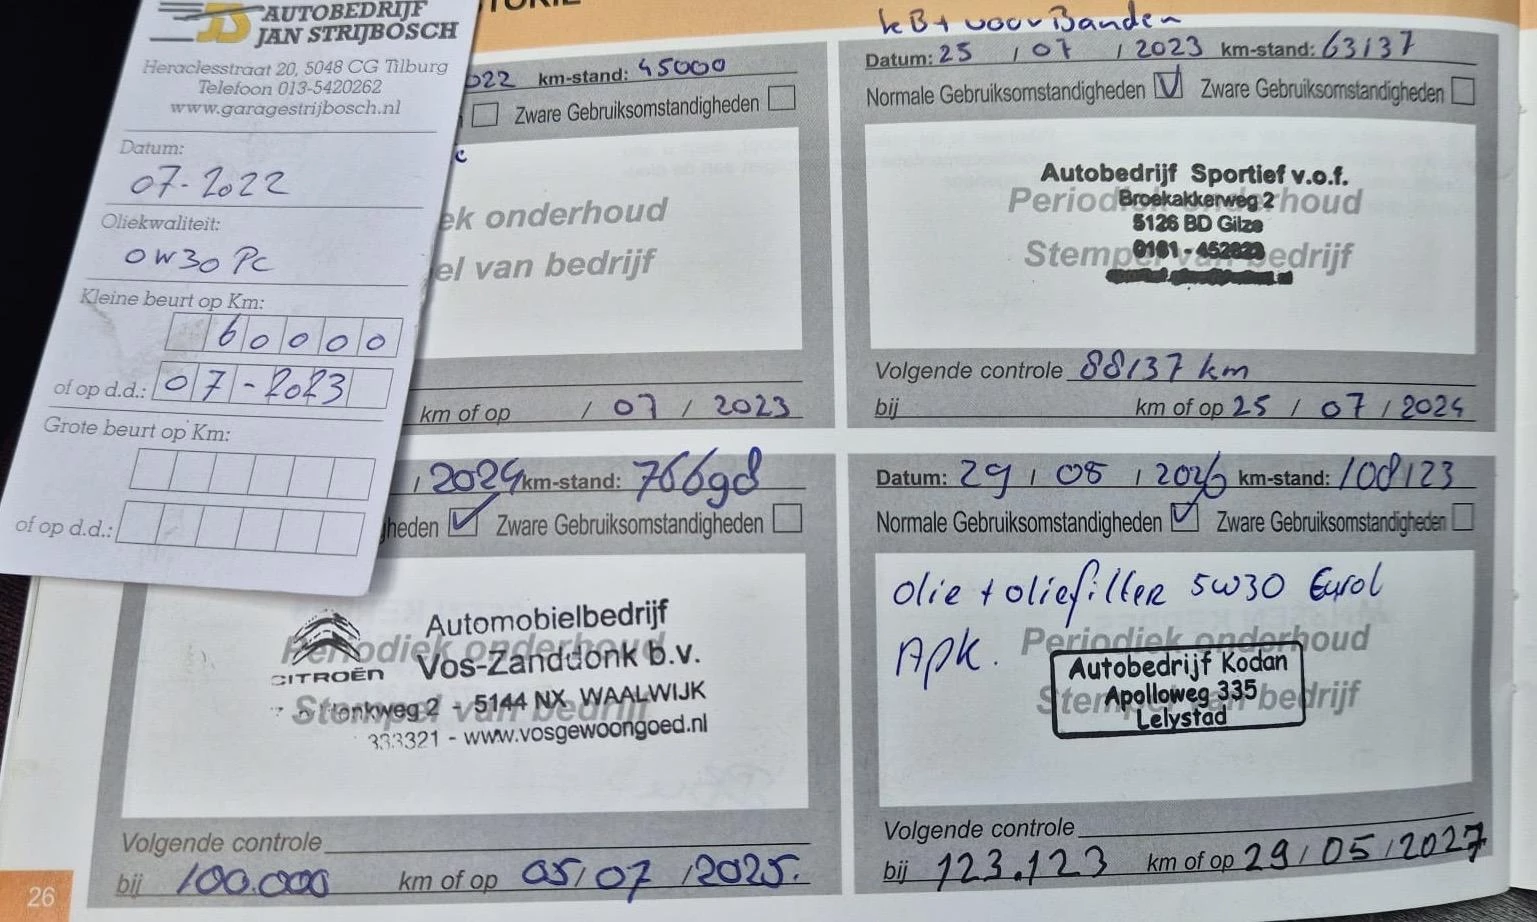 AUTOBEDRIJF
JAN STRIJBOSCH
Heraclesstraat 20, 5048 CG Tilburg
Telefoon 013-5420262
www.garagestrijbosch.nl
Datum:
07-2022
Oliekwaliteit:
0W30 PC
Kleine beurt op Km:
60000
of op d.d.: 07-2023
Grote beurt op Km:
of op d.d.:
022 km-stand: 45000
Zware Gebruiksomstandigheden
ek onderhoud
el van bedrijf
km of op / 07 / 2023
kB+ voor Banden
Datum: 25 / 07 / 2023 km-stand: 63137
Normale Gebruiksomstandigheden Zware Gebruiksomstandigheden
Autobedrijf Sportief v.o.f.
Periodiek onderhoud
Broekakkerweg 2
5126 BD Gilze
Stempel van bedrijf
0161-452829
Volgende controle 88137 km
bij km of op 25 / 07 / 2024
/ 2024 km-stand: 76698
gheden Zware Gebruiksomstandigheden
Automobielbedrijf
Periodiek onderhoud
CITROËN Vos-Zanddonk b.v.
Stempel van bedrijf
onkweg 2 - 5144 NX WAALWIJK
333321 - www.vosgewoongoed.nl
Volgende controle
bij 100.000 km of op 05/07/2025.
Datum: 29 / 05 / 2026 km-stand: 108123
Normale Gebruiksomstandigheden Zware Gebruiksomstandigheden
olie + oliefilter 5W30 Eurol
APK.
Periodiek onderhoud
Autobedrijf Kodan
Apolloweg 335
Stempel van bedrijf
Lelystad
Volgende controle
bij 123.123 km of op 29/05/2027
26